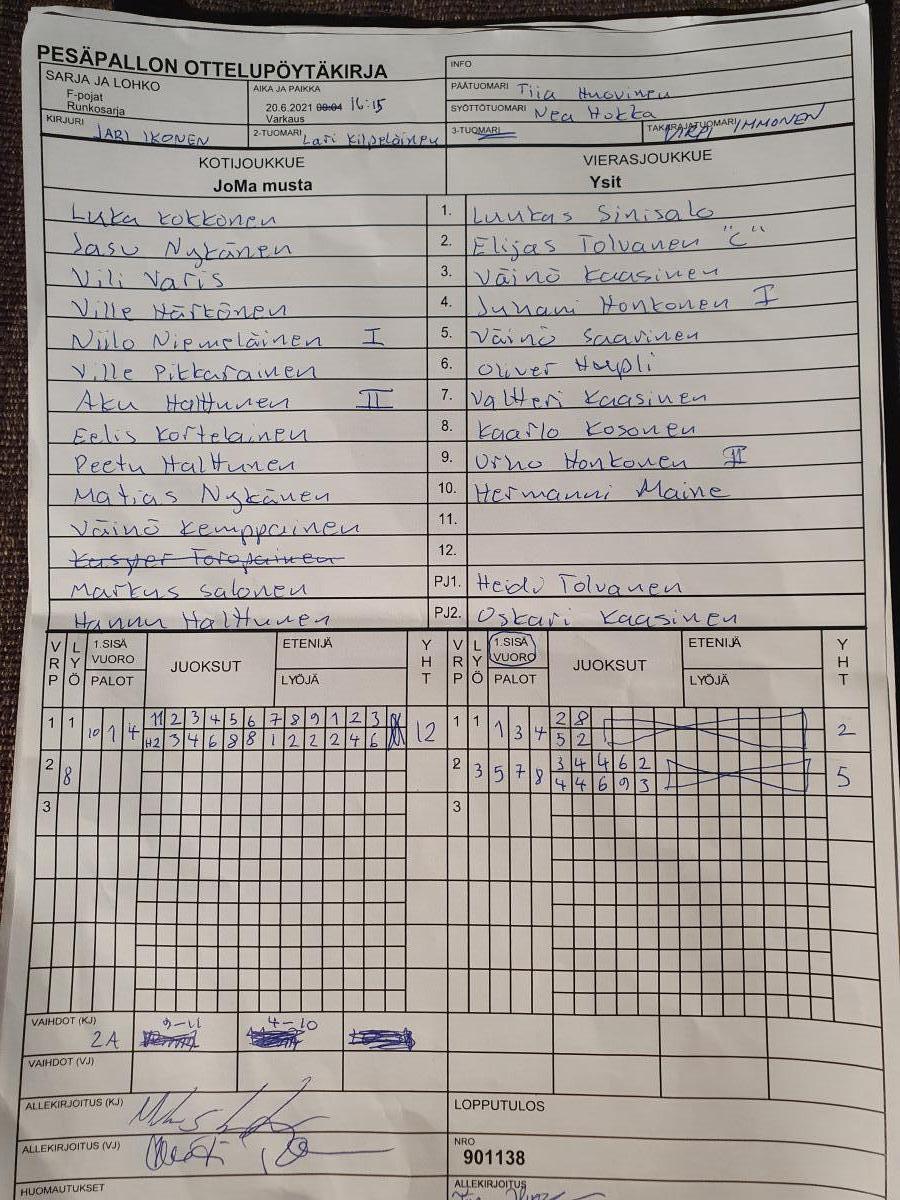 PESÄPALLON OTTELUPÖYTÄKIRJA
INFO
SARJA JA LOHKO
F-pojat
Runkosarja
AIKA JA PAIKKA
20.6.2021 00:04 16:15
Varkaus
PÄÄTUOMARI Tiia Huovinen
SYÖTTÖTUOMARI Nea Hokka
KIRJURI JARI IKONEN
2-TUOMARI Lari Kilpeläinen
3-TUOMARI
TAKARAJATUOMARI VIRPI IMMONEN
KOTIJOUKKUE
JoMa musta
VIERASJOUKKUE
Ysit
Luka Kokkonen 1. Luukas Sinisalo
Jasu Nykänen 2. Elijas Tolvanen "C"
Vili Varis 3. Väinö Kaasinen
Ville Härkönen 4. Juhani Honkonen I
Niilo Niemeläinen I 5. Väinö Saarinen
Ville Pikkarainen 6. Oliver
Aku Halttunen II 7. Valtteri Kaasinen
Eelis Kortelainen 8. Kaarlo Kosonen
Peetu Halttunen 9. Urho Honkonen II
Matias Nykänen 10. Hermanni Maine
Väinö Kemppainen 11.
Kasper Toropainen 12.
Markus Salonen PJ1. Heidi Tolvanen
Hannu Halttunen PJ2. Oskari Kaasinen
VRP LYÖ 1.SISÄ VUORO PALOT JUOKSUT ETENIJÄ LYÖJÄ YHT VRP LYÖ 1.SISÄ VUORO PALOT JUOKSUT ETENIJÄ LYÖJÄ YHT
1 1 10 1 4 11 2 3 4 5 6 7 8 9 1 2 3 12 1 1 1 3 4 2 8 2
H2 3 4 6 8 8 1 2 2 2 4 6 5 2
2 8 2 3 5 7 8 3 4 4 6 2 5
4 4 6 9 3
3 3
VAIHDOT (KJ) 2A 9-11 4-10
VAIHDOT (VJ)
ALLEKIRJOITUS (KJ)
LOPPUTULOS
ALLEKIRJOITUS (VJ)
NRO
901138
HUOMAUTUKSET
ALLEKIRJOITUS